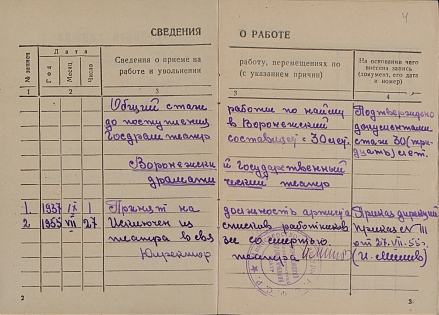 4
СВЕДЕНИЯ О РАБОТЕ
№ записи
Дата
Год
Месяц
Число
Сведения о приеме на работу, перемещениях по
работе и увольнении (с указанием причин)
На основании чего внесена запись (документ, его дата и номер)
1 2 3 3 4
Общий стаж работы по найму Подтверждено
до поступления в Воронежский документами
Госдрамтеатр составляет 30 лет. стаж 30 (три-
дцать) лет.
Воронежский Государственный
драматический театр
1. 1937 IX 1 Принят на должность артиста Приказ дирекции
2 1955 VII 27 Исключен из списков работников Приказ № 111
театра в связи со смертью. от 27.VII-55г.
Директор театра
2
3